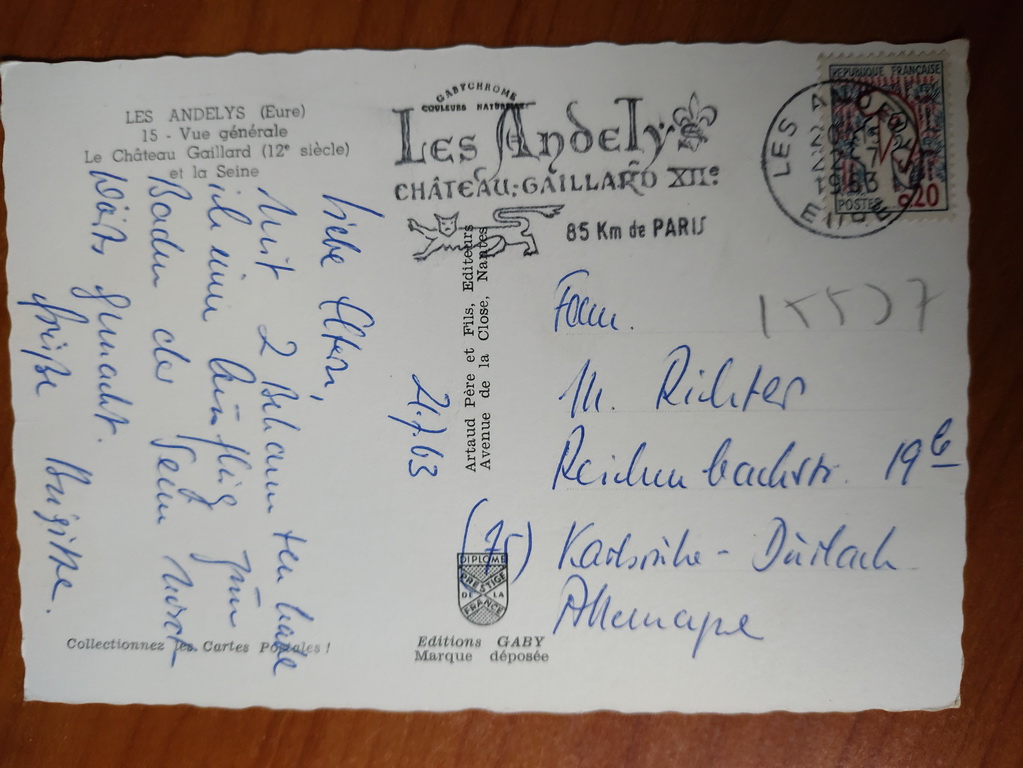 LES ANDELYS (Eure)
15 - Vue générale
Le Château Gaillard (12e siècle)
et la Seine
GABYCHROME
COULEURS NATURELLES
LES ANDELYS
CHÂTEAU-GAILLARD XIIe
85 Km de PARIS
LES A
1963
EURE
REPUBLIQUE FRANÇAISE
POSTES 0,20
Liebe Eltern,
Mit 2 Bekannten habe
ich einen Ausflug zum
Baden der Seine
gemacht.
Grüße Brigitte.
2.7.63
Artaud Père et Fils, Editeurs
Avenue de la Close, Nantes
Fam.
M. Richter
Reichenbachstr. 19b
(75) Karlsruhe - Durlach
Allemagne
15537
DIPLOME
PRESTIGE
DE LA
FRANCE
Collectionnez les Cartes Postales !
Editions GABY
Marque déposée